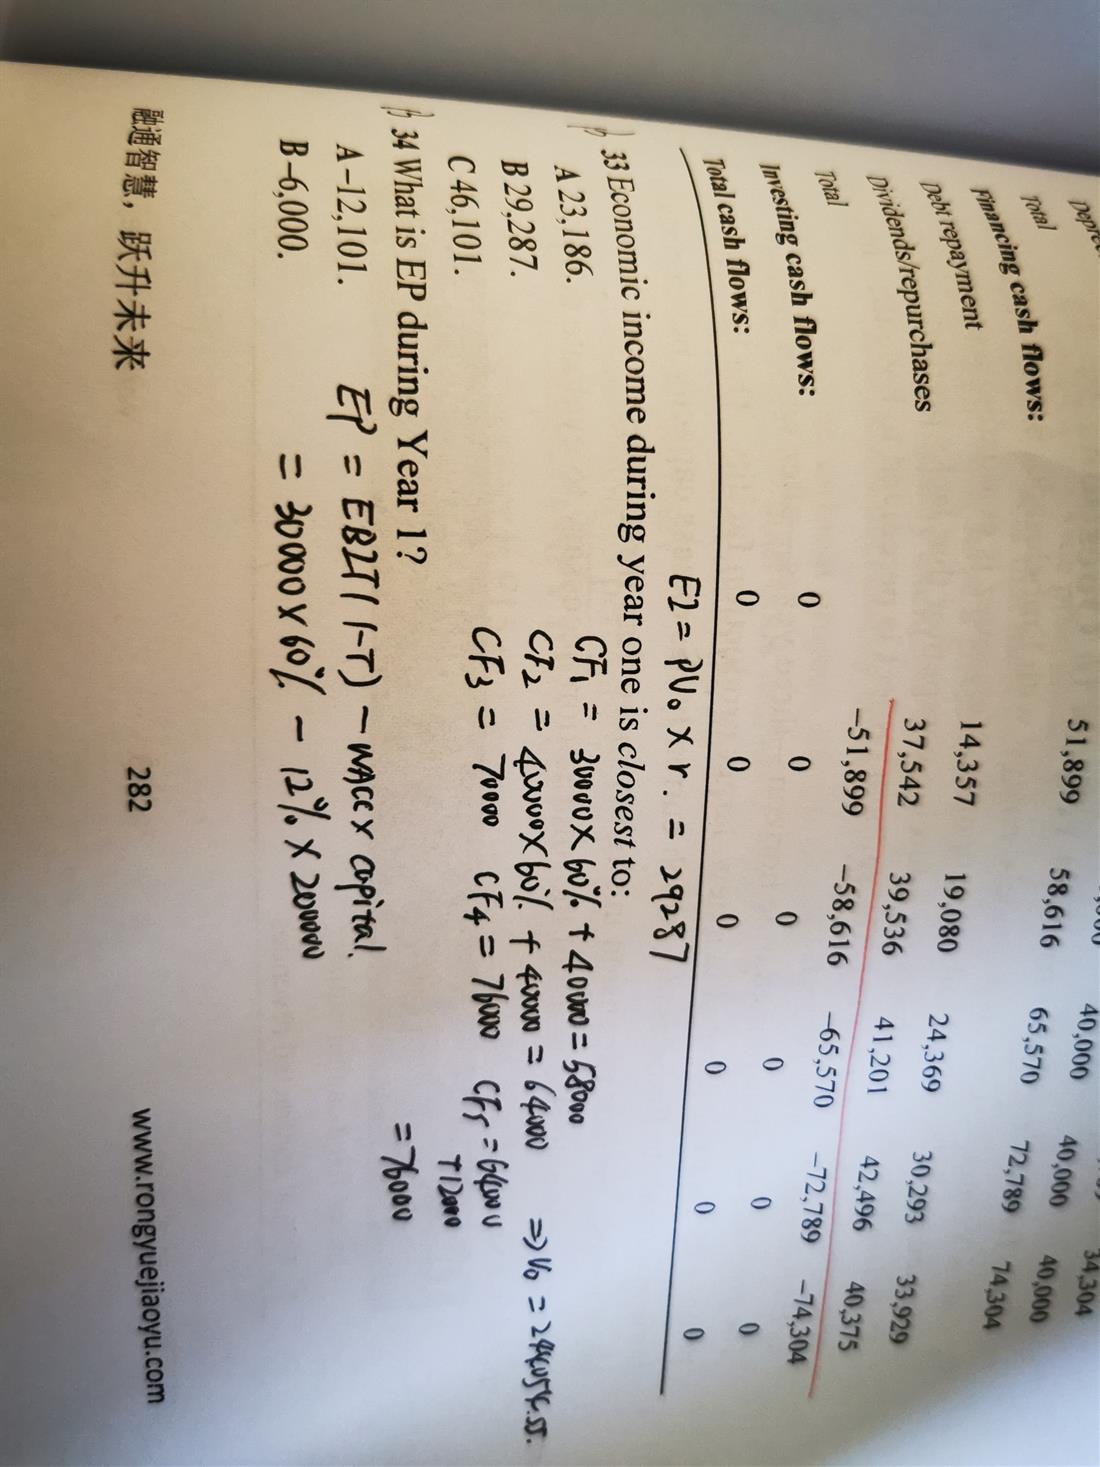 34,304
40,000 40,000 40,000
Total 51,899 58,616 65,570 72,789 74,304
Financing cash flows:
Debt repayment 14,357 19,080 24,369 30,293 33,929
Dividends/repurchases 37,542 39,536 41,201 42,496 40,375
Total −51,899 −58,616 −65,570 −72,789 −74,304
Investing cash flows: 0 0 0 0 0 0
Total cash flows: 0 0 0 0 0 0
EI = PV₀ × r. = 29287
33 Economic income during year one is closest to:
A 23,186.
CF₁ = 30000×60% + 40000 = 58000
B 29,287.
CF₂ = 40000×60% + 40000 = 64000
⇒ V₀ =
C 46,101.
CF₃ = 70000 CF₄ = 76000 CF₅ = 64000
+12000
= 76000
34 What is EP during Year 1?
A −12,101.
EP = EBIT(1-T) − WACC × capital.
B −6,000.
= 30000×60% − 12% × 200000
融通智慧，跃升未来 282 www.rongyuejiaoyu.com